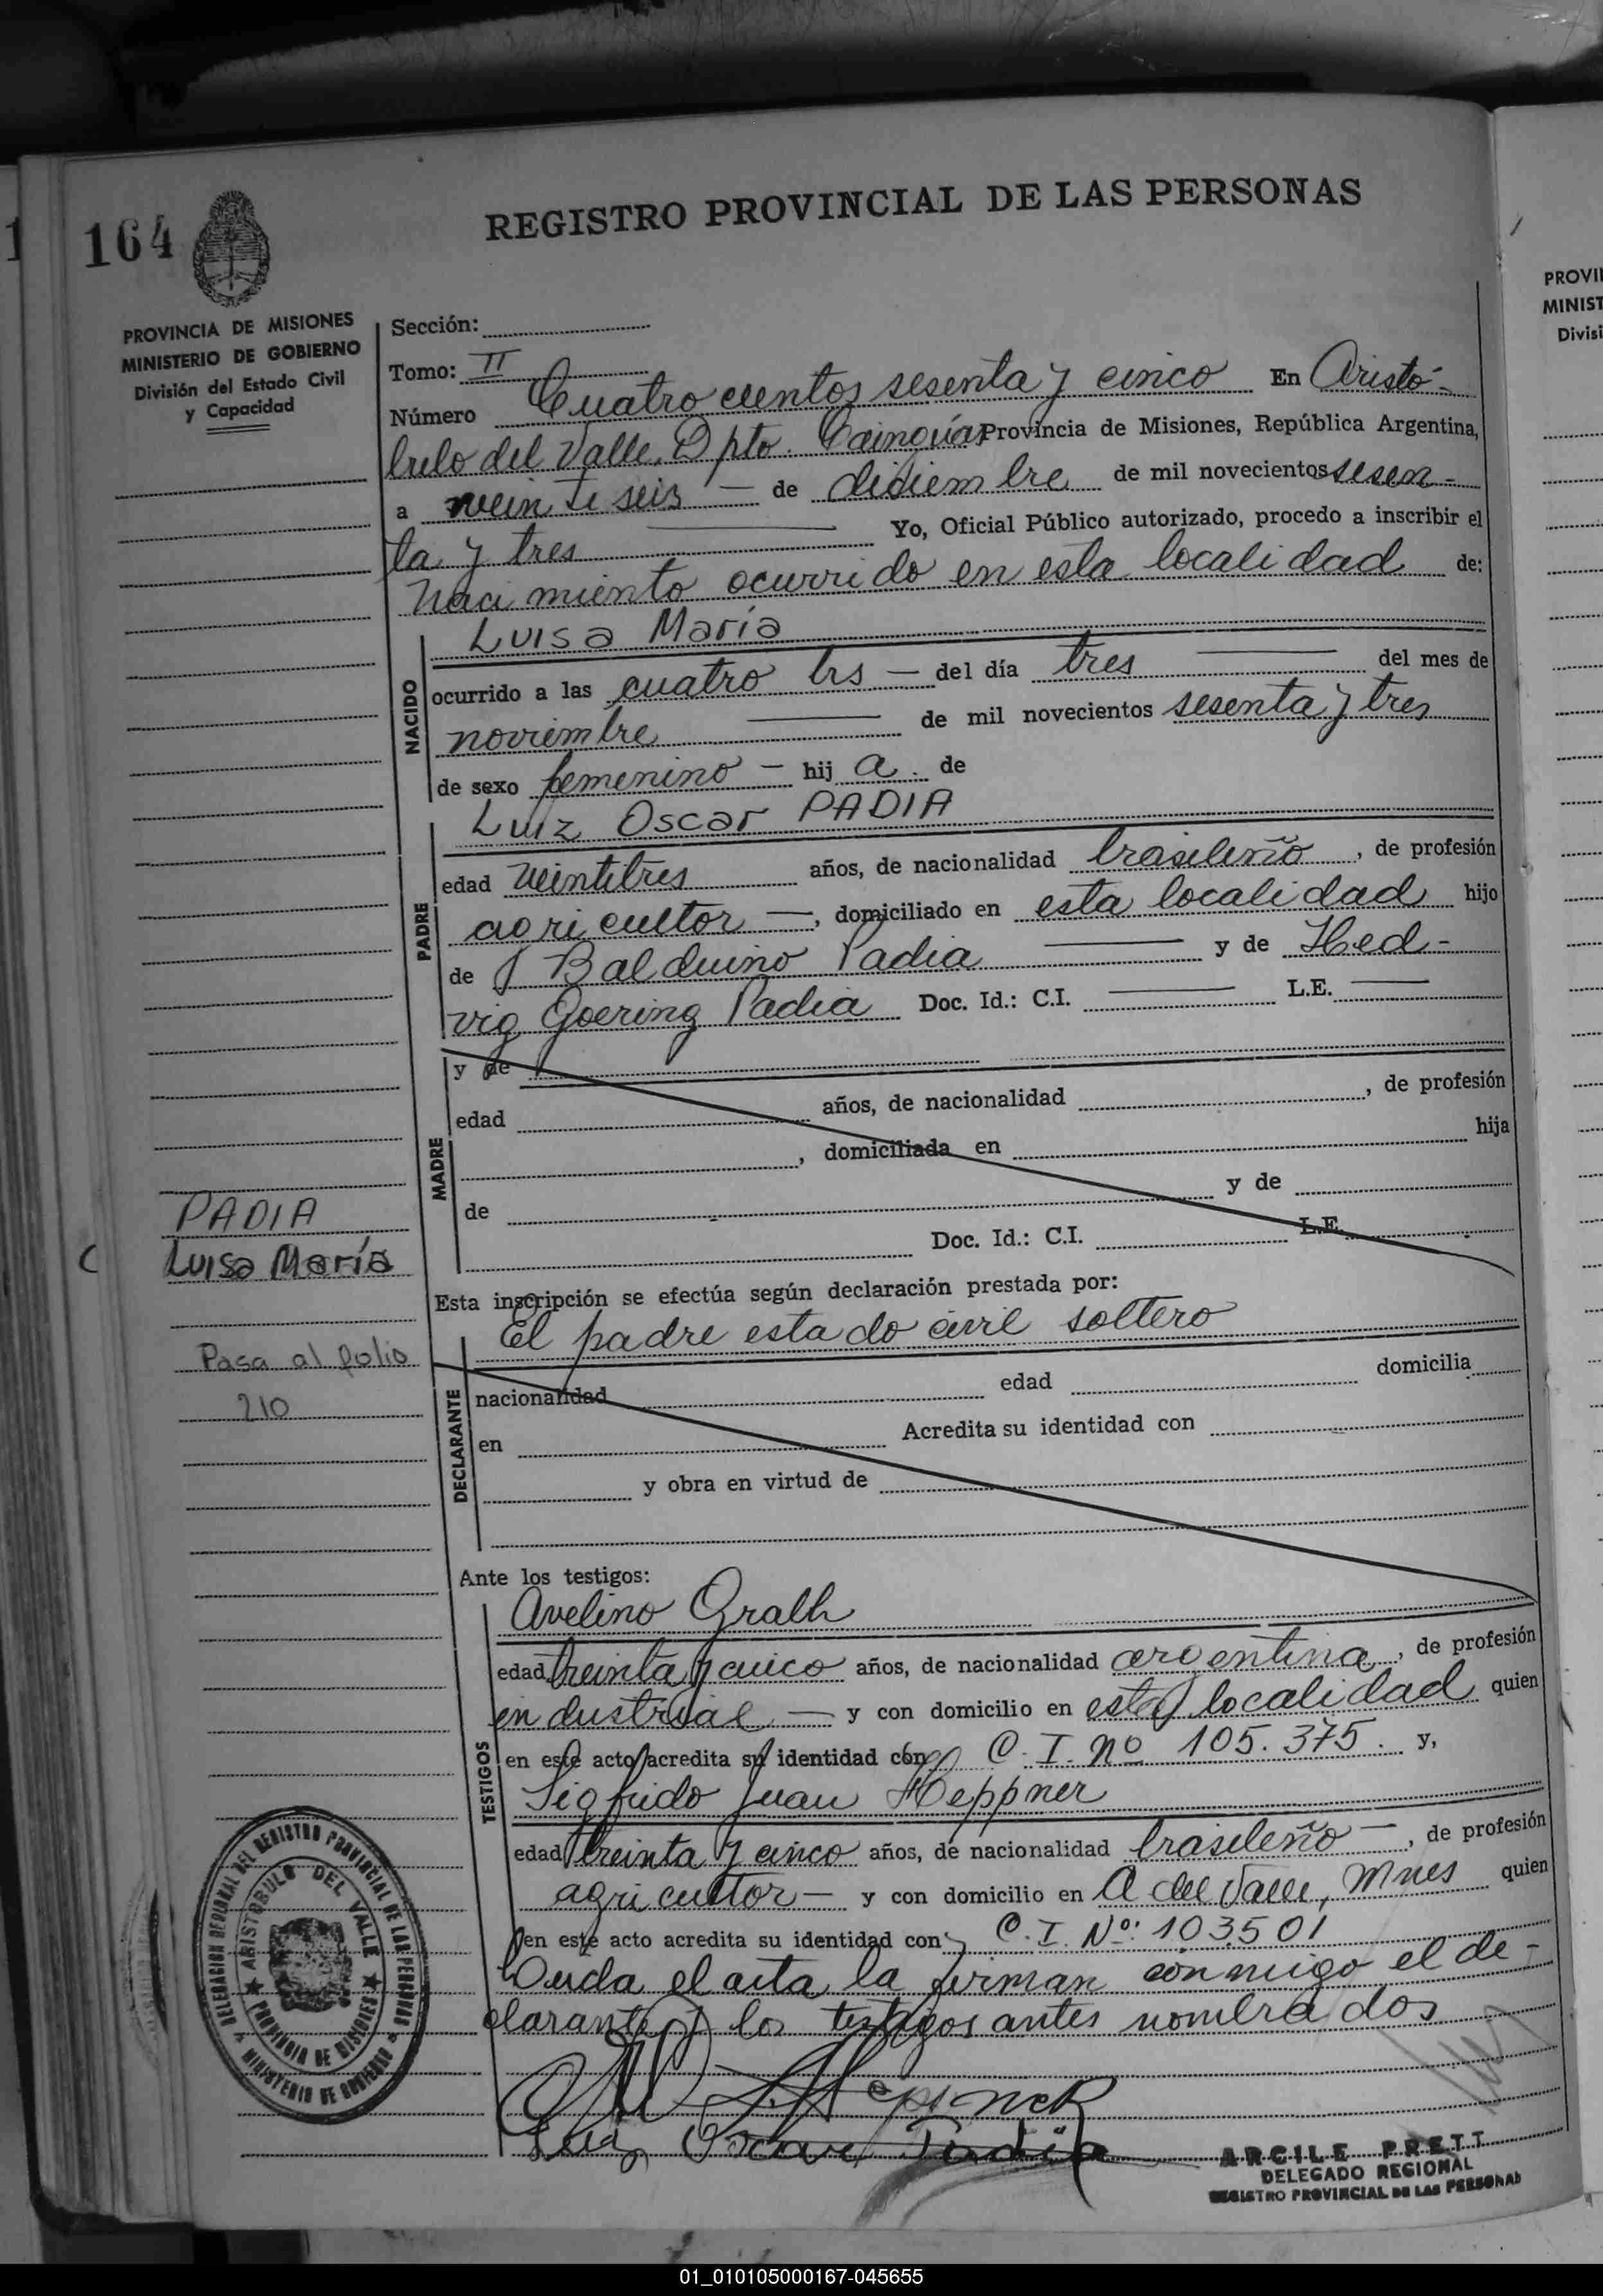 164
REGISTRO PROVINCIAL DE LAS PERSONAS
PROVINCIA DE MISIONES
MINISTERIO DE GOBIERNO
División del Estado Civil
y Capacidad
Sección:
Tomo: II
Número Cuatro cientos sesenta y cinco En Aristó-
bulo del Valle, Dpto. Cainguás Provincia de Misiones, República Argentina,
a vein te seis — de didiembre de mil novecientos sesen-
ta y tres Yo, Oficial Público autorizado, procedo a inscribir el
Nacimiento ocurrido en esta localidad de:
NACIDO
Luisa María
ocurrido a las cuatro hrs — del día tres del mes de
noviembre de mil novecientos sesenta y tres
de sexo femenino — hij a. de
PADRE
Luiz Oscar PADIA
edad veintitres años, de nacionalidad brasileño, de profesión
agricultor —, domiciliado en esta localidad hijo
de Balduino Padia y de Hed-
vig Goering Padia Doc. Id.: C.I. L.E.
MADRE
y de
edad años, de nacionalidad , de profesión
, domiciliada en hija
de y de
Doc. Id.: C.I. L.E.
PADIA
Luisa María
Esta inscripción se efectúa según declaración prestada por:
El padre estado civil soltero
Pasa al folio
210
DECLARANTE
nacionalidad edad domicilia
en Acredita su identidad con
y obra en virtud de
Ante los testigos:
TESTIGOS
Avelino Gralh
edad treinta y cinco años, de nacionalidad argentina, de profesión
industrial — y con domicilio en esta localidad quien
en este acto acredita su identidad con C. I. Nº 105.375. y,
Sigfrido Juan Heppner
edad treinta y cinco años, de nacionalidad brasileño —, de profesión
agricultor — y con domicilio en A del Valle, Mnes quien
en este acto acredita su identidad con C. I. Nº: 103501
Leida el acta la firman conmigo el de-
clarante y los testigos antes nombrados
Luiz Oscar Padia
DELEGACION REGIONAL DEL REGISTRO PROVINCIAL DE LAS PERSONAS
MINISTERIO DE GOBIERNO
ARISTOBULO DEL VALLE
PROVINCIA DE MISIONES
ARGILE PRETT
DELEGADO REGIONAL
REGISTRO PROVINCIAL DE LAS PERSONAS
PROVI
MINIST
Divisi
01_010105000167-045655